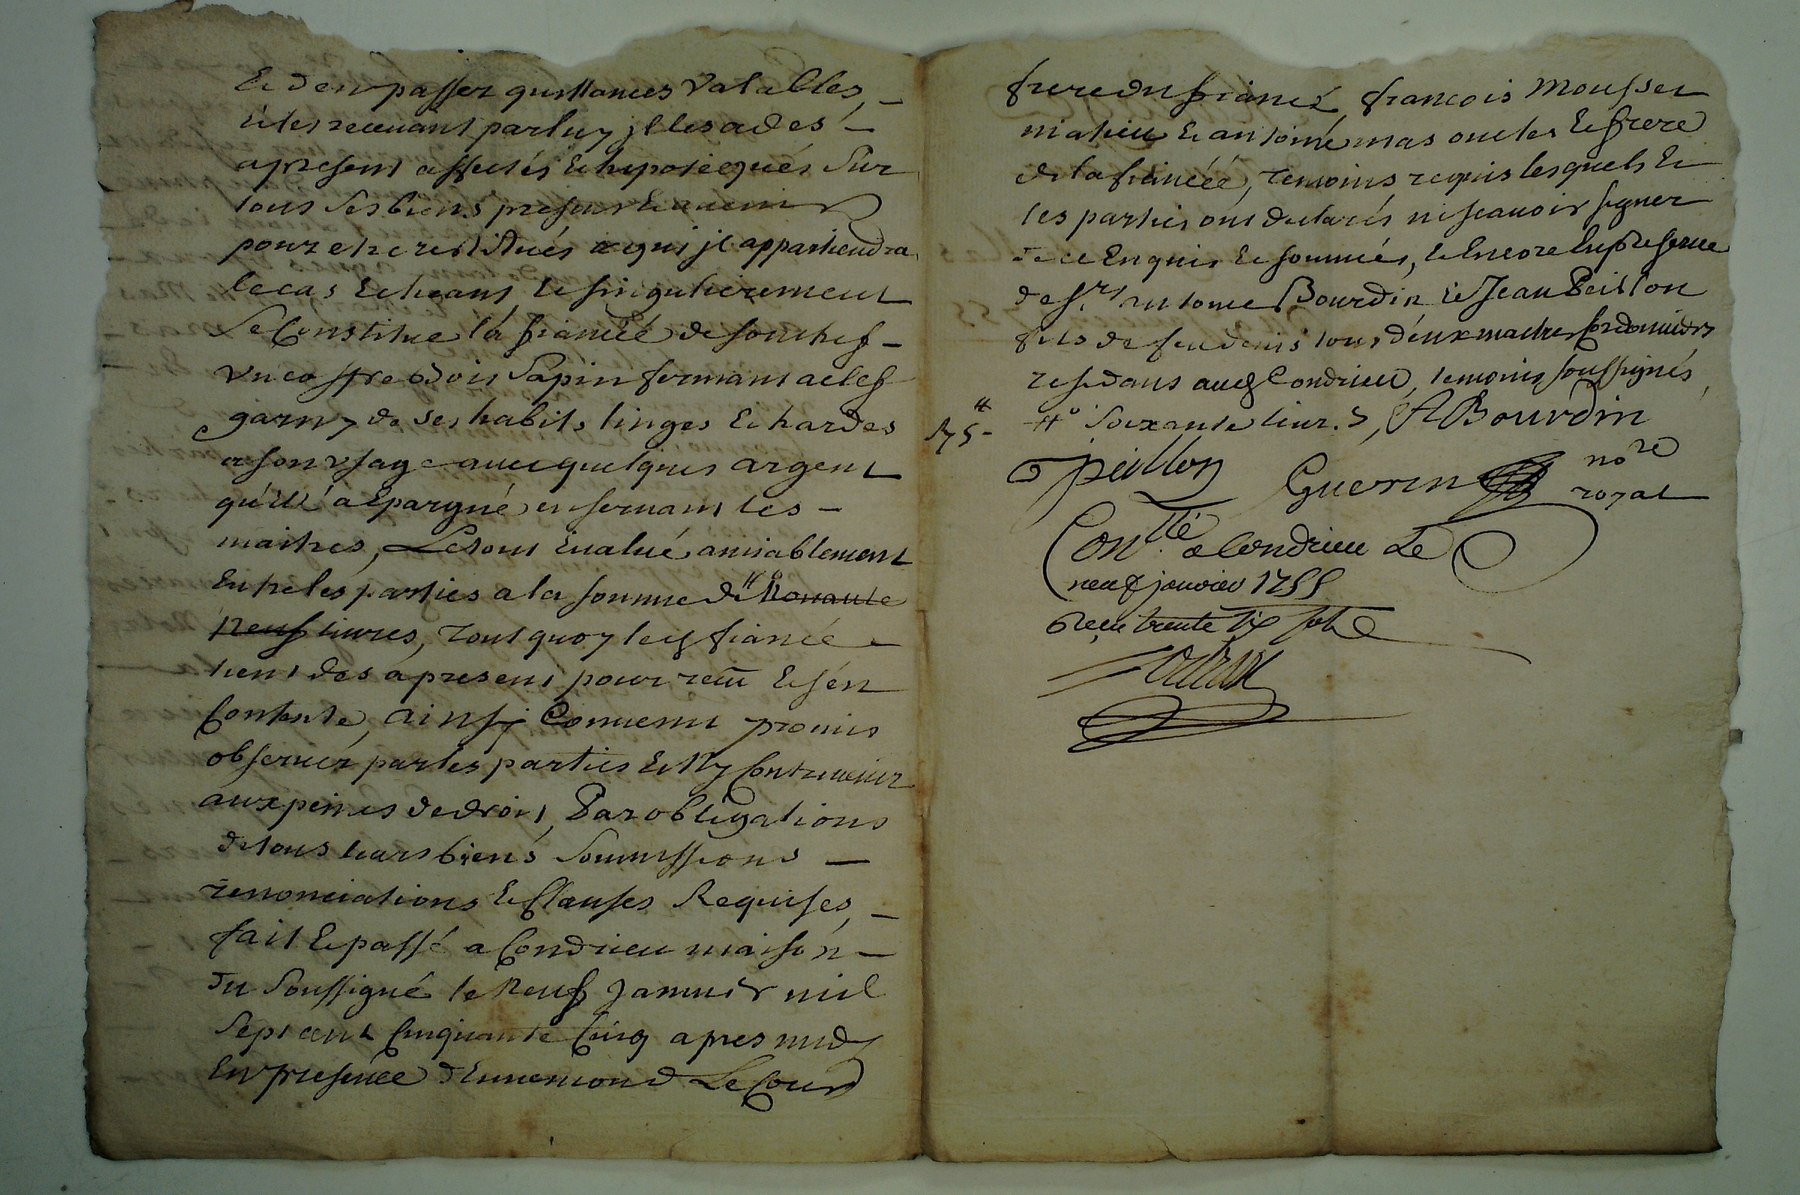 Et d'en passer quittances valables, —
et les recevant par luy jl les a dés —
apresent affectés Et hipotequés Sur
tous Ses biens presens Et avenir
pour etre restitués a qui jl appartiendra
le cas Echeant, Et singulierement
Se Constitue la fiancéé de son chef —
un coffre bois Sapin fermant a clef
garny de ses habits linges Et hardes
a son usage avec quelques argent
qu'elle a Epargné en servant les —
maitres, Le tout Evalué amiablement
Entre les parties a la somme de # Nonante
Neuf livres, tout quoy led fiancé —
tient des apresent pour recu Et s'en
Contente, ainsy Convenu promis
observér par les parties Et N'y Contrevenir
aux peines de droit, Par obligations
de tous leurs biens Soumissions —
renonciations Et Clauses Requises, —
fait Et passé a Condrieu maison —
du Soussigné le Neuf Janvier mil
Sept cent Cinquante Cinq apres midy
En presence d'Ennemond LeCour
frere du fiancé, francois Mousset
matieu Et antoine mas oncles Et frere
de la fiancéé, temoins requis lesquels Et
les parties ont declarés ne scavoir signer
de ce Enquis Et sommés, Et Encore En presence
de Srs antoine Bourdin Et Jean Peillon
fils de feu denis tous deux maitres Cordonniers
residans aud Condrieu, temoins soussignés
# Soixante livres, ABourdin
peillon Guerin nore
royal
Conlle a Condrieu Le
neuf janvier 1755
Reçu trente six sols